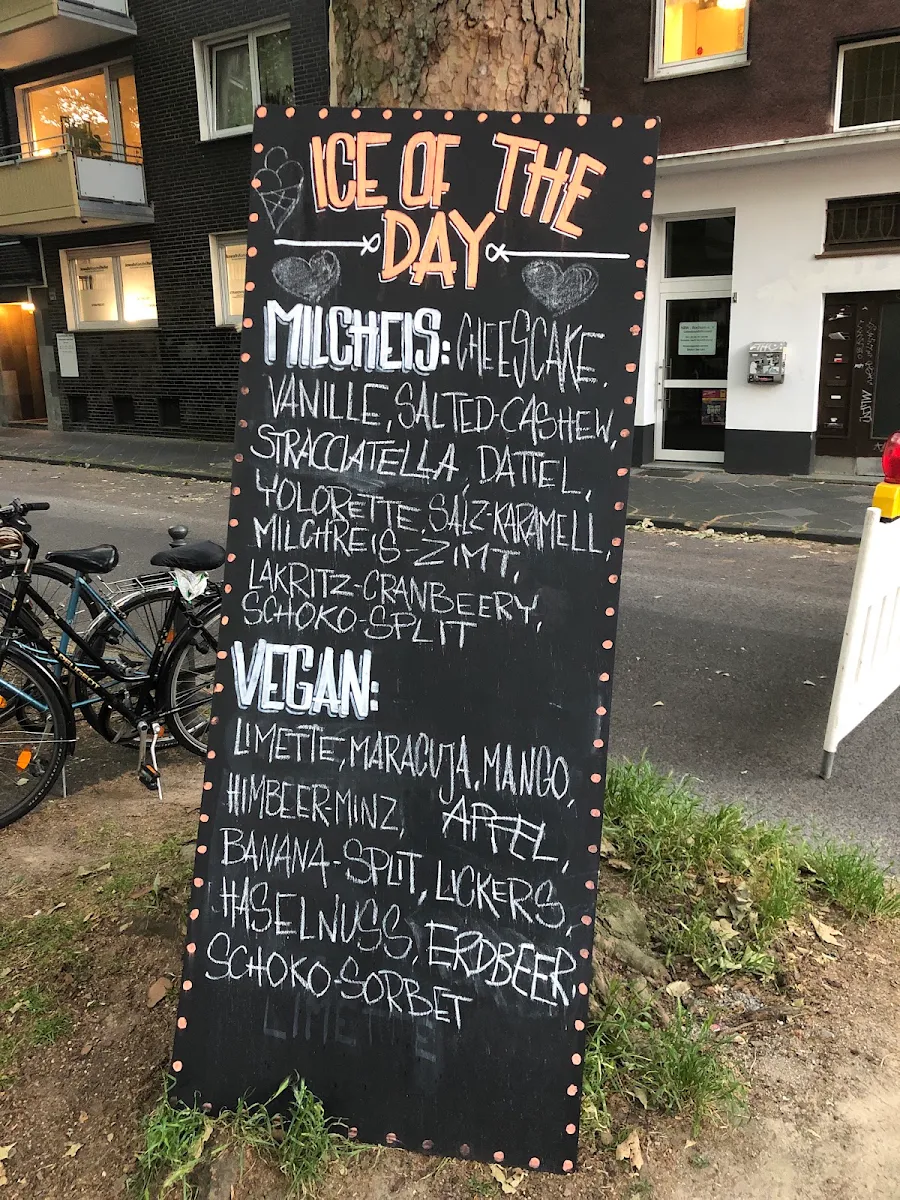 ICE OF THE
DAY
MILCHEIS: CHEESCAKE,
VANILLE, SALTED-CASHEW,
STRACCIATELLA, DATTEL,
YOLORETTE, SALZ-KARAMELL,
MILCHREIS-ZIMT,
LAKRITZ-CRANBEERY,
SCHOKO-SPLIT
VEGAN:
LIMETTE, MARACUJA, MANGO,
HIMBEER-MINZ, APFEL,
BANANA-SPLIT, LICKERS,
HASELNUSS, ERDBEER,
SCHOKO-SORBET
LIMETTE